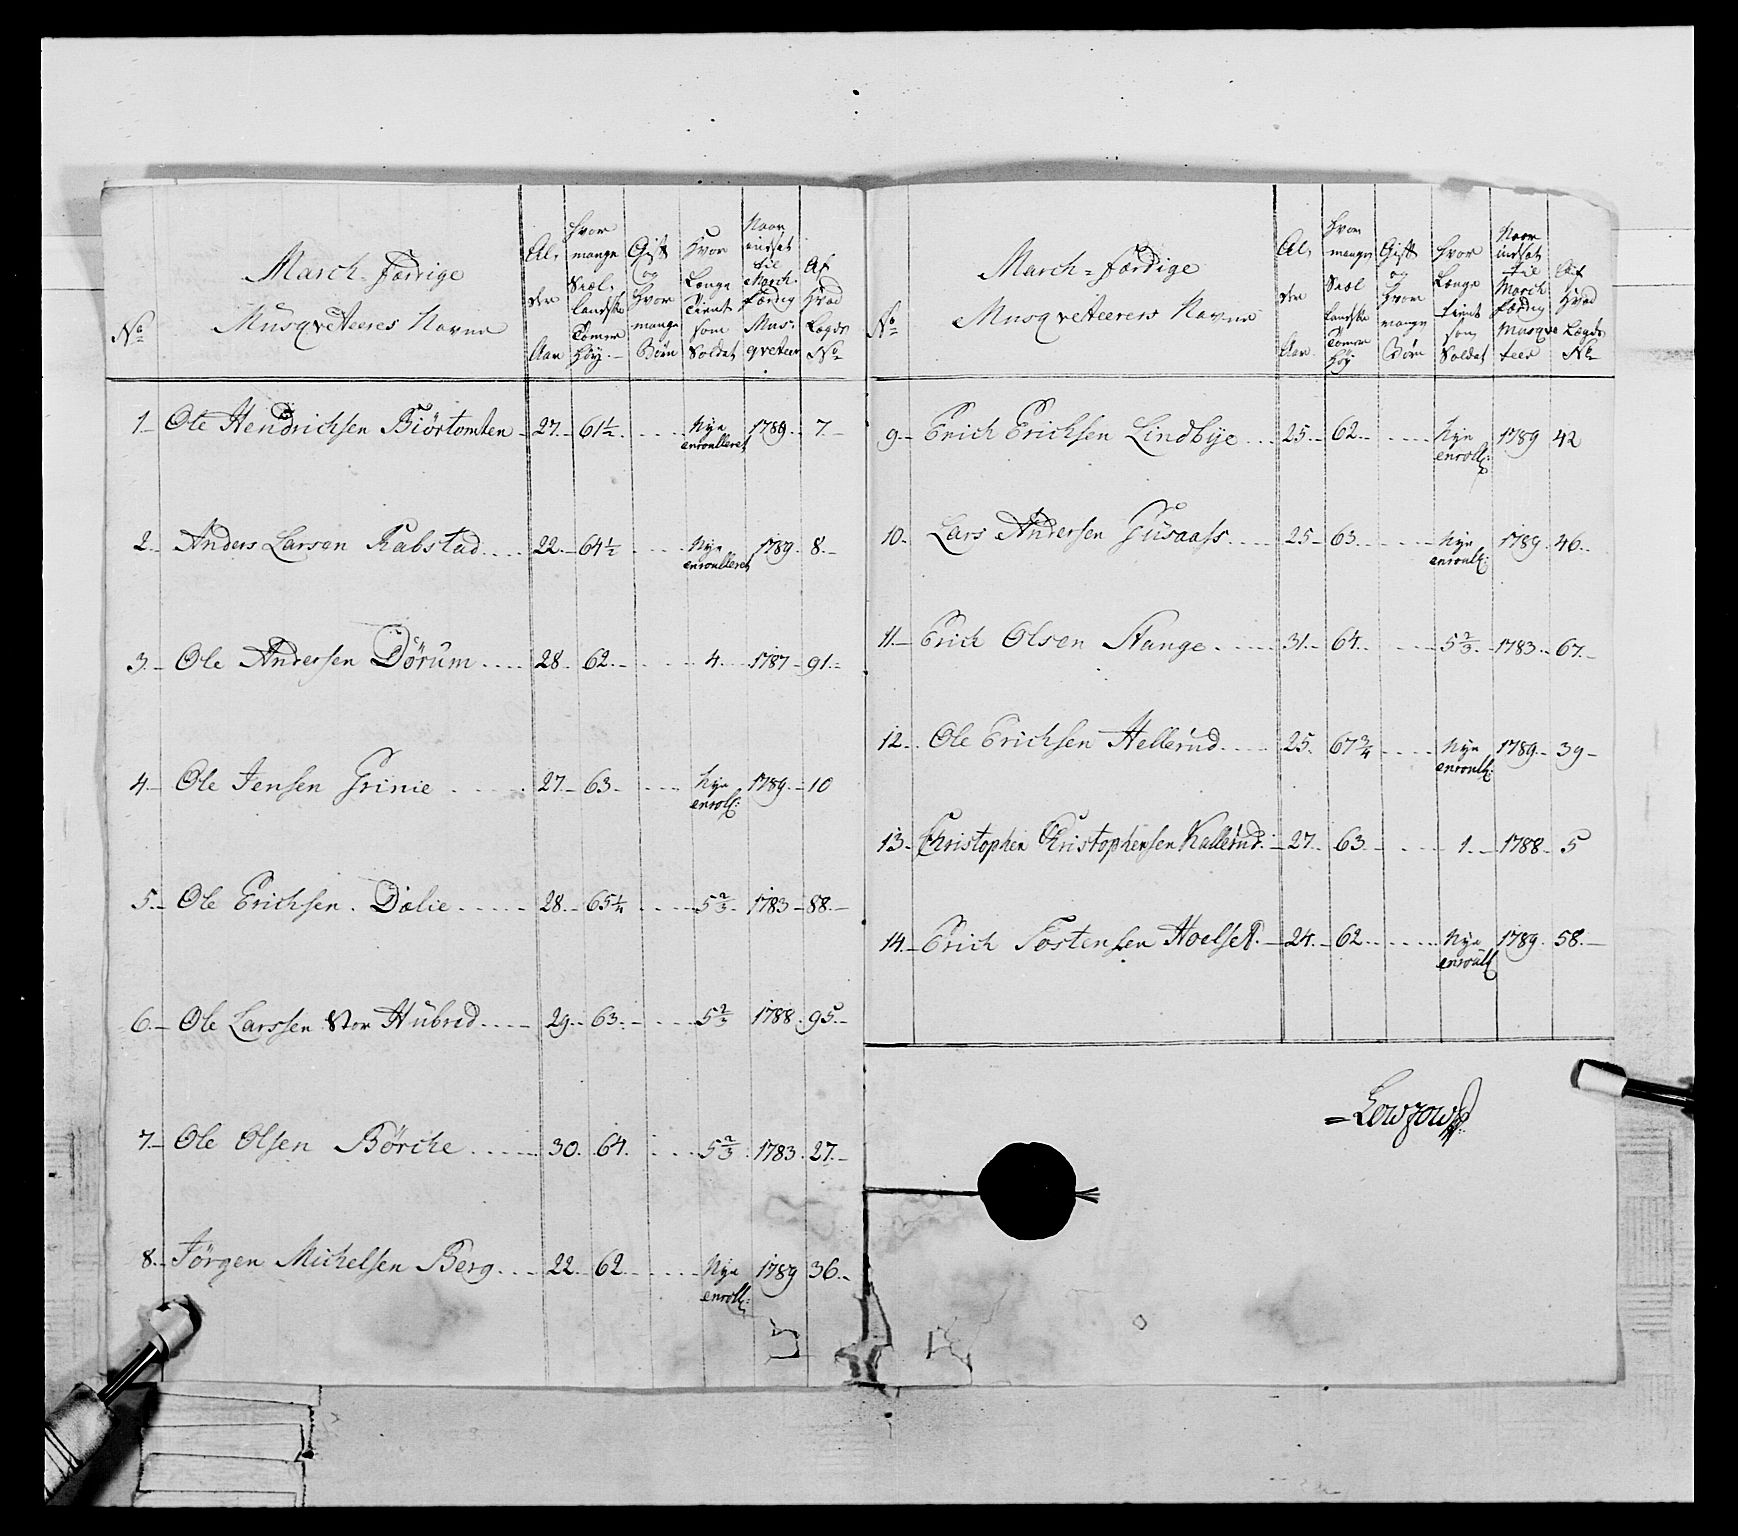 No
March-færdige
Musqveteeres Navne
Al,
der
Aar
Hvor
mange
Siæl,
landske
Tomer
Høy.
Gift
og
Hvor
mange
Børn
Hvor
Længe
Tient
som
Soldat
Naar
indsat
til
March
færdig
Mus-
qveteer
Af
Hvad
Lægds
No
1 Ole Hendrichsen Biørtomten 27. 61½. Nye enroulleret 1789. 7.
2. Anders Larsen Rabstad 22. 64½ Nye enroulleret 1789. 8.
3. Ole Andersen Dörüm 28. 62. 4. 1787 91.
4 Ole Jensen Grinie 27. 63. Nye enroll: 1789. 10
5. Ole Erichsen Dælie 28. 65¼ 5⅔. 1783 88.
6. Ole Larssen Stor Hübred 29. 63. 5⅔ 1788. 95.
7. Ole Olsen Börche 30. 64. 5⅔. 1783. 27.
8. Jörgen Michelsen Berg 22. 62. Nye enroll: 1789 36.
No
March=færdige
Musqveteerers Navne
Al,
der
Aar.
Hvor
mange
Siæl
landske
Tomer
Høy.
Gift
og
Hvor
mange
Børn
Hvor
Længe
tient
som
Soldat
Naar
indsat
til
March
færdig
Musqve
teer
Af
Hvad
Lægds
No
9. Erich Erichsen Lindbÿe 25. 62. Nye enroll: 1789 42
10. Lars Andersen Güsaass 25 63. Nye enroull: 1789. 46.
11. Erich Olsen Stange 31. 64. 5⅔. 1783. 67.
12. Ole Erichsen Hellerüd 25. 67¾ Nye enroull: 1789. 39
13. Christopher Christophersen Kallerüd 27. 63. 1. 1788. 5
14. Erich Tostensen Hoelset 24. 62. Nye enroull 1789. 58.
=Lowzow